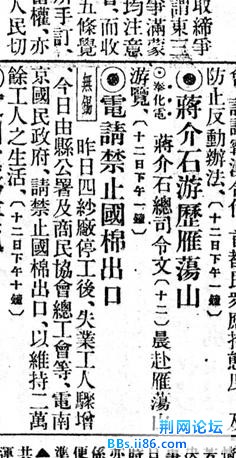 取締爭
請東三
爭滿蒙
均注意
而收
五條覺
所手訂
嘗權、亦
人民切
防止反動辦法、(十二日下午一鐘)
◎蔣介石游歷雁蕩山
◎奉化電 蔣介石總司令文(十二)晨赴雁蕩山
游覽、(十二日下午一鐘)
◎電請禁止國棉出口
無錫 昨日四紗廠停工後、失業工人驟增
、今日由縣公署及商民協會總工會等、電南
京國民政府、請禁止國棉出口、以維持二萬
餘工人之生活、(十二日下午十鐘)
荆网论坛
BBs.ii86.com